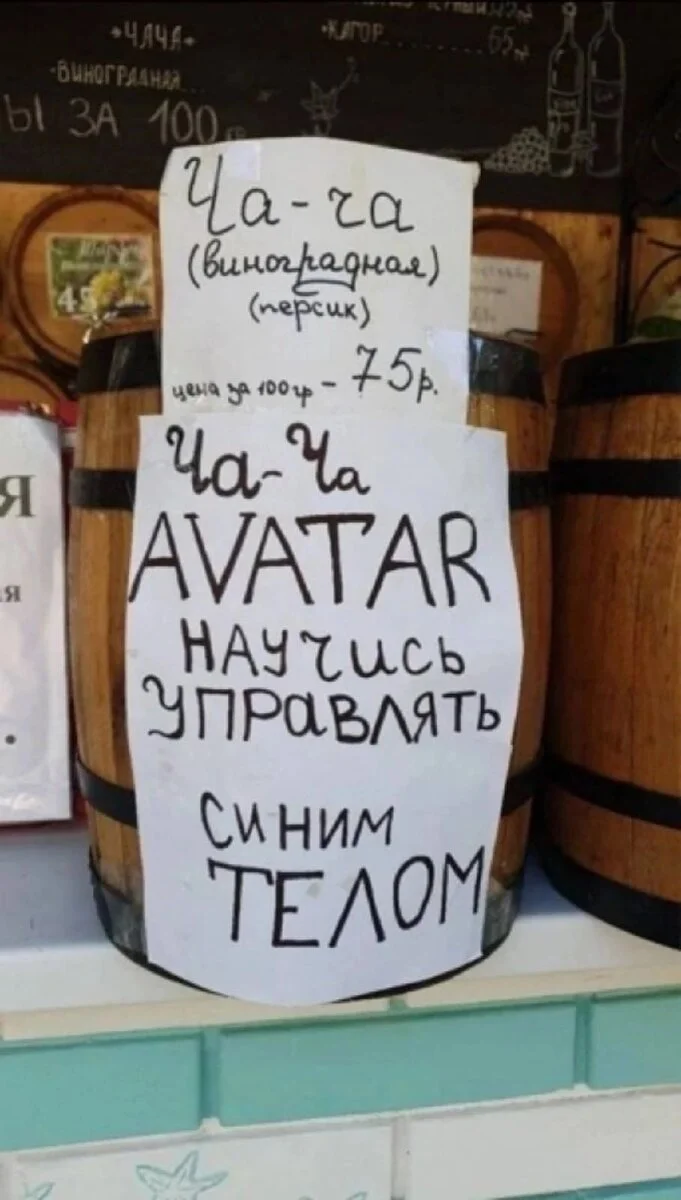 •ЧАЧА•
•ВИНОГРАДНАЯ
•КАГОР 65
Ы ЗА 100
Ча-ча
(виноградная)
(персик)
цена за 100гр - 75р.
Ча-Ча
AVATAR
НАУЧИСЬ
УПРАВЛЯТЬ
СИНИМ
ТЕЛОМ
Я